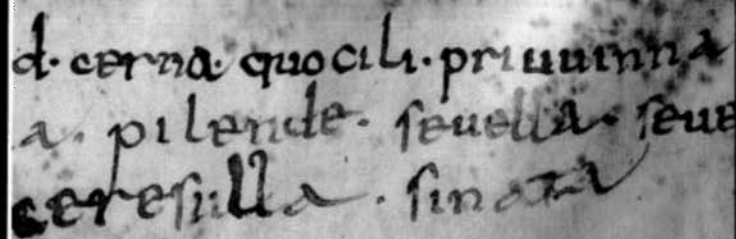 d· cerna· quocili· priuuinna
a· pilende· seuella· seue
ceresulla· sinata